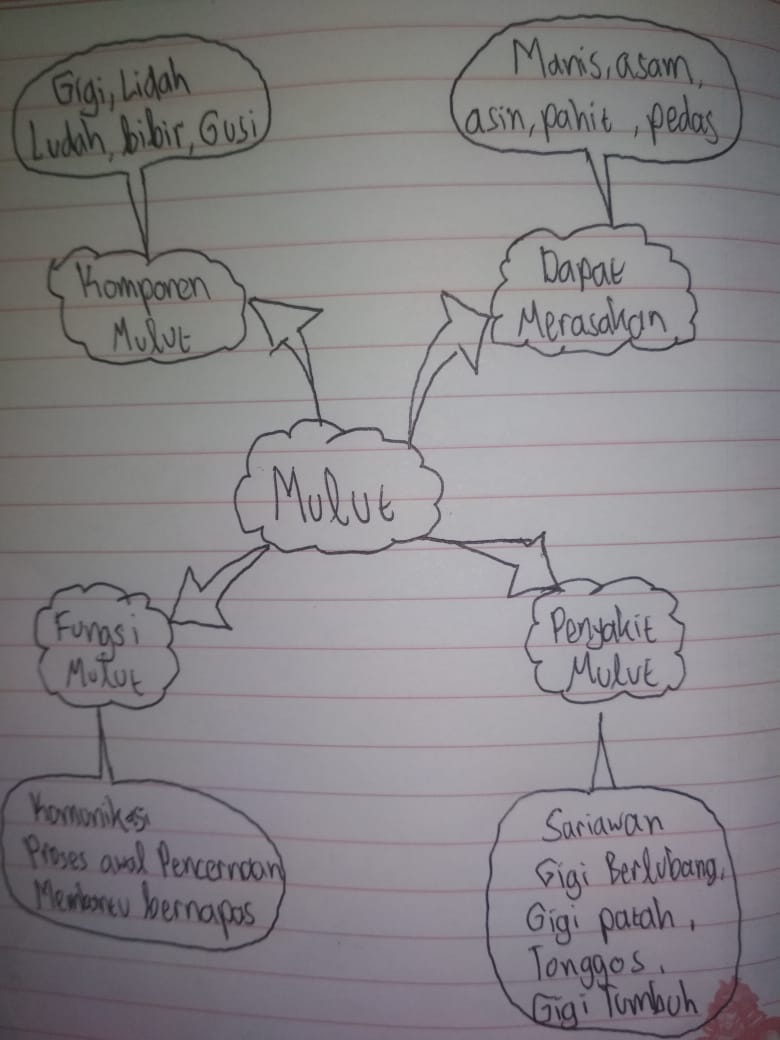 Gigi, Lidah
Ludah, bibir, Gusi
Manis, asam,
asin, pahit, pedas
Komponen
Mulut
Dapat
Merasakan
Mulut
Fungsi
Mulut
Penyakit
Mulut
Komonikasi
Proses awal Pencernaan
Membantu bernapas
Sariawan
Gigi Berlubang,
Gigi patah,
Tonggos,
Gigi Tumbuh